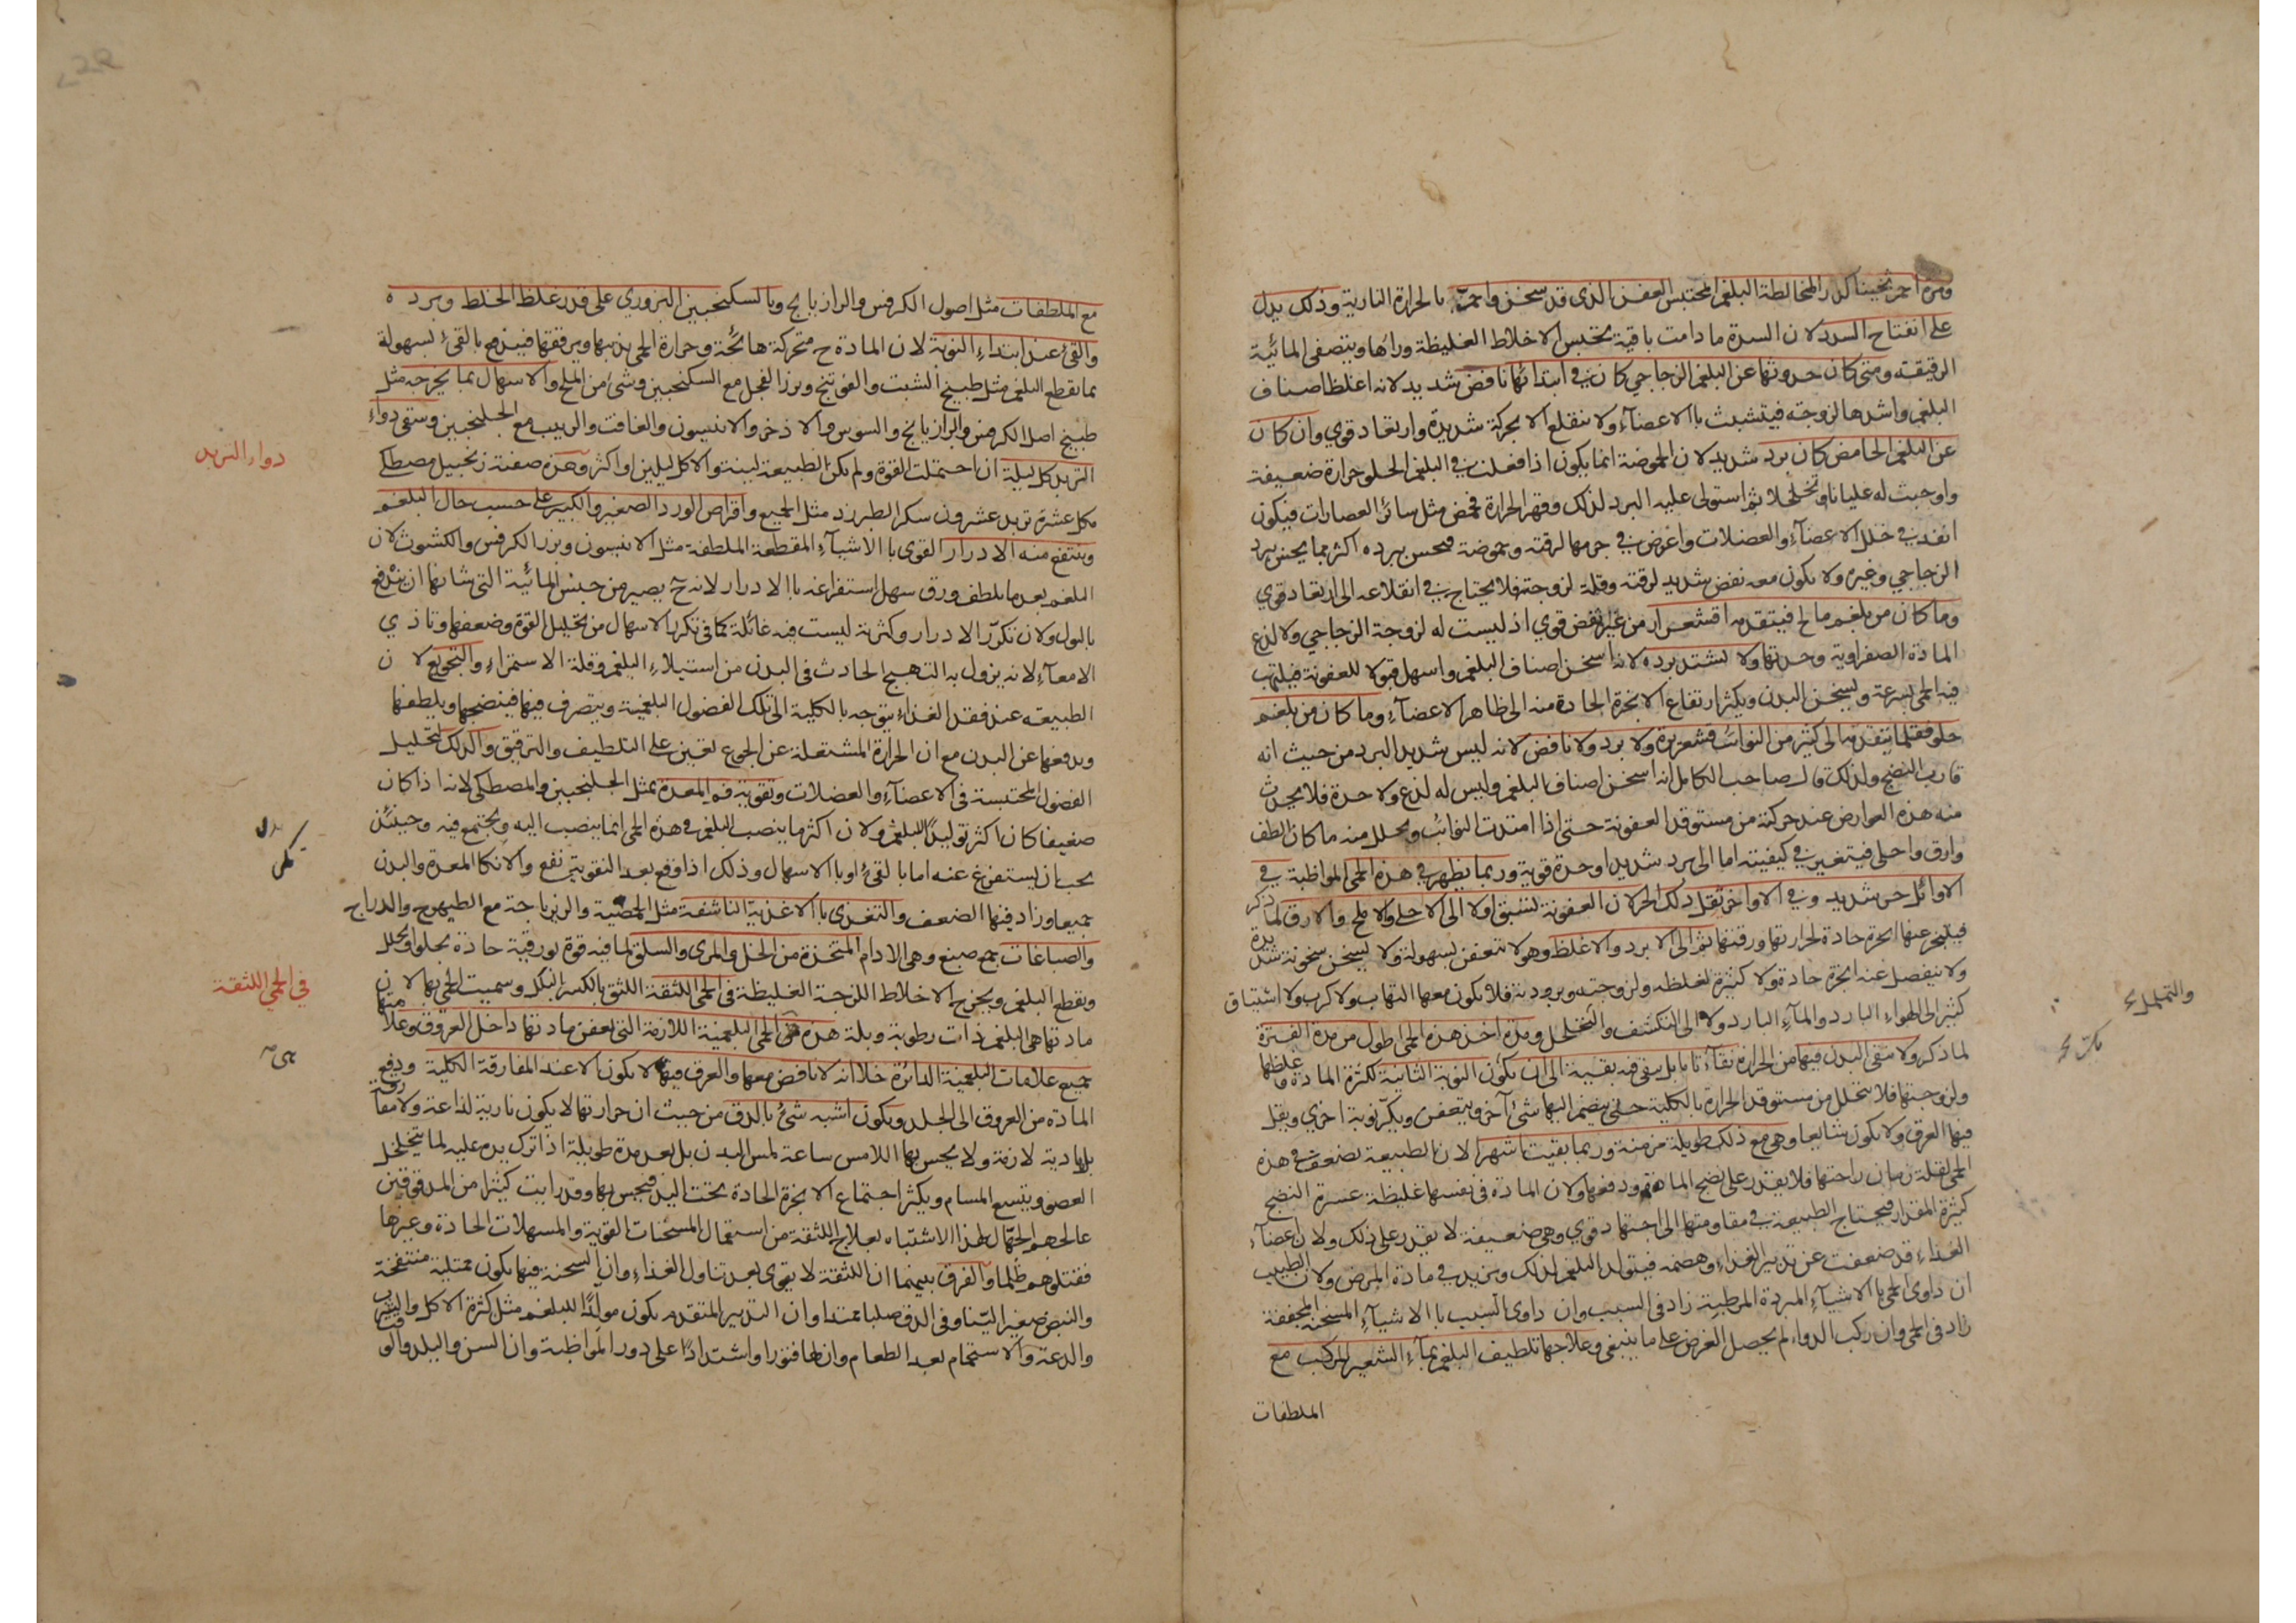 ومرة احمر ثخينا كدر المخالطة البلغم المحتبس العفن الذى قد سخن واحمر بالحرارة النارية وذلك يدل
على انفتاح السدد لان السدة ما دامت باقية يحتبس الاخلاط الغليظة ورائها ويتصفى المائية
الرقيقة ومتى كان حدوثها عن البلغم الزجاجي كان في ابتدائها نافض شديد لانه اغلظ اصناف
البلغم واشدها لزوجة فيتشبث بالاعضآء ولا ينقلع الا بحركة شديدة وارتعاد قوي وان كان
عن البلغم الحامض كان برد شديد لان الحموضة انما يكون اذا فعلت في البلغم الحلو حرارة ضعيفة
واوجبت له غليانا وتخلخلا ثم استولى عليه البرد لذلك وقهر الحرارة فحمض مثل سائر العصارات فيكون
انفذ في خلل الاعضآء والعضلات واغوص في جرمها لرقته وحموضة فيحس ببرده اكثر مما يحس ببرد
الزجاجي وغيره ولا يكون معه نفض شديد لرقته وقلة لزوجته فلا يحتاج في انقلاعه الى ارتعاد قوي
وما كان من بلغم مالح فيتقدمه اقشعرار من غير نفض قوي اذ ليست له لزوجة الزجاجي ولا لذع
المادة الصفراوية وحدتها ولا يشتد برده لانه اسخن اصناف البلغم واسهل قبولا للعفونة فيلتهب
فيه الحمى بسرعة ويسخن البدن ويكثر ارتفاع الابخرة الحادة منه الى ظاهر الاعضآء وما كان من بلغم
حلو فقلما يتقدمه الى كثير من النوائب قشعريرة ولا برد ولا نافض لانه ليس شديد البرد من حيث انه
قارب النضج ولذلك قال صاحب الكامل انه اسخن اصناف البلغم وليس له لذع ولا حدة فلا يحدث
منه هذه العوارض عند حركته من مستوقد العفونة حتى اذا امتدت النوائب وتحلل منه ما كان الطف
وارق واحلى فيتغير في كيفيته اما الى برد شديد او حدة قوية وربما يظهر في هذه الحمى المواظبة في
الاوائل حر شديد وفي الاواخر تقل ذلك الحر لان العفونة تسبق اولا الى الاحلى والاملح والارق لما ذكر
فيتبخر عنها ابخرة حادة لحرارتها ورقتها ثم الى الابرد والاغلظ وهو لا تتعفن بسهولة ولا يسخن سخونة شديدة
ولا ينفصل عنه ابخرة حادة ولا كثيرة لغلظه ولزوجته وبرودته فلا يكون معها التهاب ولا كرب ولا اشتياق
كثير الى الهواء البارد والمآء البارد ولا الى التكشف والتخلخل ومدة اخذ هذه الحمى اطول من مدة الفترة
لما ذكر ولا ينقى البدن فيها من الحرارة نقآء تاما بل يبقى فيه بقية الى ان يكون النوبة الثانية لكثرة المادة وغلظها
ولزوجتها فلا تتحلل من مستوقد الحرارة بالكلية حتى ينضم اليها شئ آخر ويتعفن ويكر نوبة اخرى ويقل
فيها العرق ولا يكون شايعا وهي مع ذلك طويلة مزمنة وربما بقيت اشهرا لان الطبيعة تضعف في هذه
الحمى لقلة زمان راحتها فلا يقدر على نضج المادة ودفعها ولان المادة في نفسها غليظة عسرة النضج
كثيرة المقدار فيحتاج الطبيعة في مقاومتها الى اجتهاد قوي وهي ضعيفة لا يقدر على ذلك ولان اعضآء
الغذاء قد ضعفت عن تدبير الغذاء وهضمه فيتولد البلغم لذلك ويزيد في مادة المرض ولان الطبيب
ان داوى الحمى بالاشيآء المبردة المرطبة زاد في السبب وان داوى السبب بالاشيآء المسخنة المجففة
زاد في الحمى وان ركب الدواء لم يحصل الغرض على ما ينبغي وعلاجها تلطيف البلغم بمآء الشعير المركب مع
الملطفات
والتململ
مع الملطفات مثل اصول الكرفس والرازيانج وبالسكنجبين البزوري على قدر غلظ الخلط وبرده
والقئ عند ابتداء النوبة لان المادة ح متحركة هائجة وحرارة الحمى يذيبها ويرققها فيندفع بالقئ بسهولة
بما يقطع البلغم مثل طبيخ الشبت والفوتنج وبزر الفجل مع السكنجبين وشئ من الملح والاسهال بما يخرجه مثل
طبيخ اصل الكرفس والرازيانج والسوس والاذخر والانيسون والغافت والزبيب مع الجلنجبين وسقى دواء
التربد كل ليلة ان احتملت القوة ولم يكن الطبيعة لينة والا كل ليلتين او اكثر وهذه صفته زنجبيل مصطكى
مكد عشرة تربد عشرون سكر الطبرزد مثل الجميع واقراص الورد الصغير والكبير على حسب حال البلغم
وينتفع منه الادرار القوى بالاشيآء المقطعة الملطفة مثل الانيسون وبزر الكرفس والكشوث لان
البلغم بعد ما يلطف ورق سهل استفراغه بالادرار لانه ح يصير من جنس المائية التى شانها ان يندفع
بالبول ولان تكرر الادرار وكثرته ليست فيه غائلة كما في تكرر الاسهال من تحليل القوة وضعفها وتاذي
الامعآء لانه يزول به التهبج الحادث في البدن من استيلاء البلغم وقلة الاستمراء والتجويع لان
الطبيعة عند فقد الغذاء يتوجه بالكلية الى تلك الفضول البلغمية ويتصرف فيها فينضجها ويلطفها
ويدفعها عن البدن مع ان الحرارة المشتعلة عن الجوع تعين على التلطيف والترقيق والدلك لتحليل
الفضول المحتبسة في الاعضآء والعضلات وتقوية فم المعدة بمثل الجلنجبين والمصطكى لانه اذا كان
ضعيفا كان اكثر توليدا للبلغم ولان اكثرها ينصب البلغم في هذه الحمى انما ينصب اليه ويجتمع فيه وحينئذ
يجب ان يستفرغ عنه اما بالقئ او بالاسهال وذلك اذا وقع بعد التقوية نفع والا نكا المعدة والبدن
جميعا وزاد فيها الضعف والتغذي بالاغذية الناشفة مثل الحمصية والزيرباجة مع الطيهوج والدراج
والصباغات جمع صبغ وهي الادام المتخذة من الخل والمرى والسلق لما فيه قوة بورقية حادة يجلو ويحلل
ويقطع البلغم ويخرج الاخلاط اللزجة الغليظة في الحمى اللثقة اللثق بالكسر البلل وسميت الحمى بها لان
مادتها هي البلغم ذات رطوبة وبلة هذه هي الحمى البلغمية اللازمة التى يعفن مادتها داخل العروق وعلامتها
جميع علامات البلغمية الدائرة خلا انه لا نافض معها والعرق فيها لا يكون الا عند المفارقة الكلية ودفع
المادة من العروق الى الجلد ويكون اشبه شئ بالدق من حيث ان حرارتها لا يكون نارية لذاعة ولا مفارقة
بل هادية لازمة ولا يحس بها اللامس ساعة لمس البدن بل بعد مدة طويلة اذا ترك يده عليه لما يتخلخل
العضو ويتسع المسام ويكثر اجتماع الابخرة الحادة تحت اليد فيحس بها وقد رايت كثيرا من المدقوقين
عالجهم الجهال لهذا الاشتباه بعلاج اللثقة من استعمال المسخنات القوية والمسهلات الحادة وغيرها
فقتلوهم ظلما والفرق بينهما ان اللثقة لا يقوى بعد تناول الغذاء وان السحنة فيها يكون ممتلية منتفخة
والنبض صغيرا لينا وفي الدق صلبا ممتدا وان التدبير المتقدم يكون مولدا للبلغم مثل كثرة الاكل والشرب
والدعة والاستحمام بعد الطعام وان لها فتورا واشتدادا على دور المواظبة وان السن والبلد والوقت
دواء التربد
في الحمى اللثقة